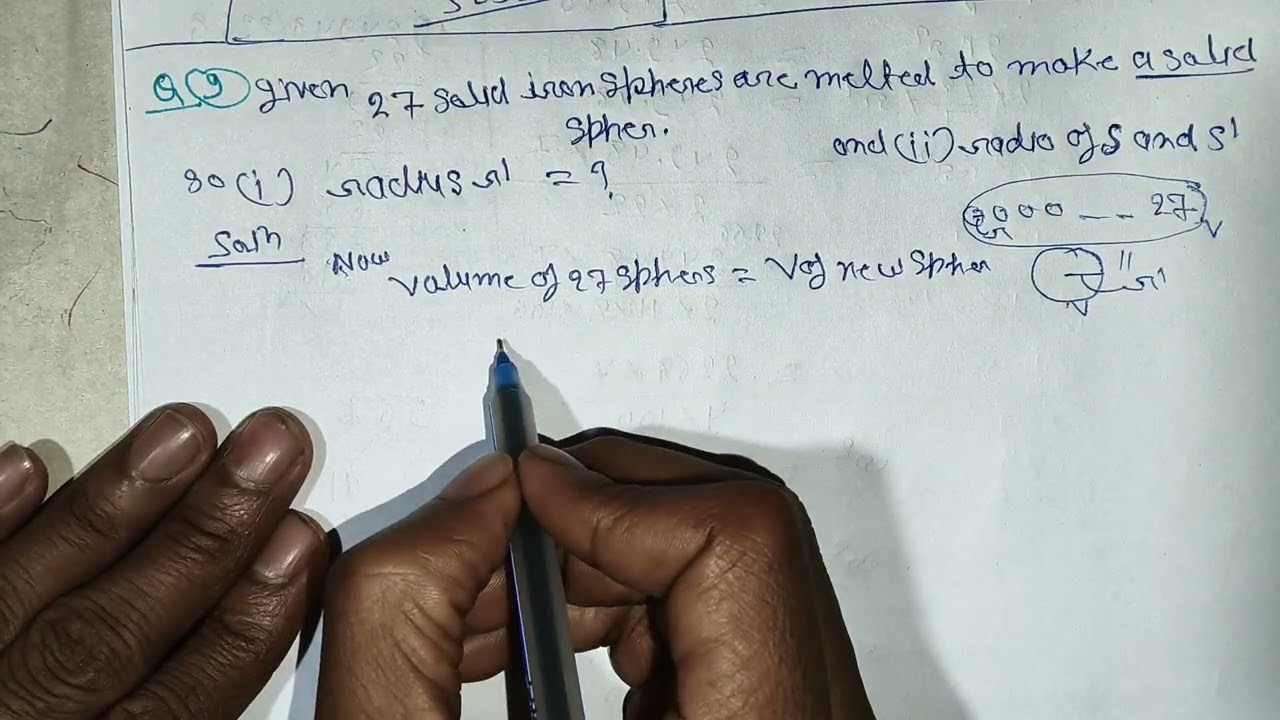 Q(9) given 27 salid iron spheres are melted to make a salid
spher.
so (i) radius r' = ? and (ii) radio of S and S'
Soln
Now volume of 27 sphers = V of new spher
000 -- 27
r'